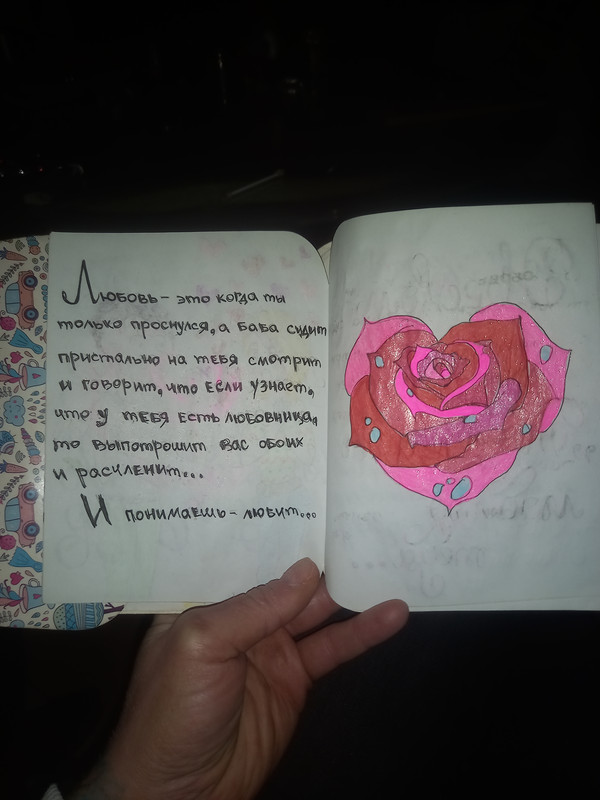 Любовь - это когда ты
только проснулся, а баба сидит
пристально на тебя смотрит
и говорит, что если узнает,
что у тебя есть любовница,
то выпотрошит вас обоих
и расчленит...
И понимаешь - любит...